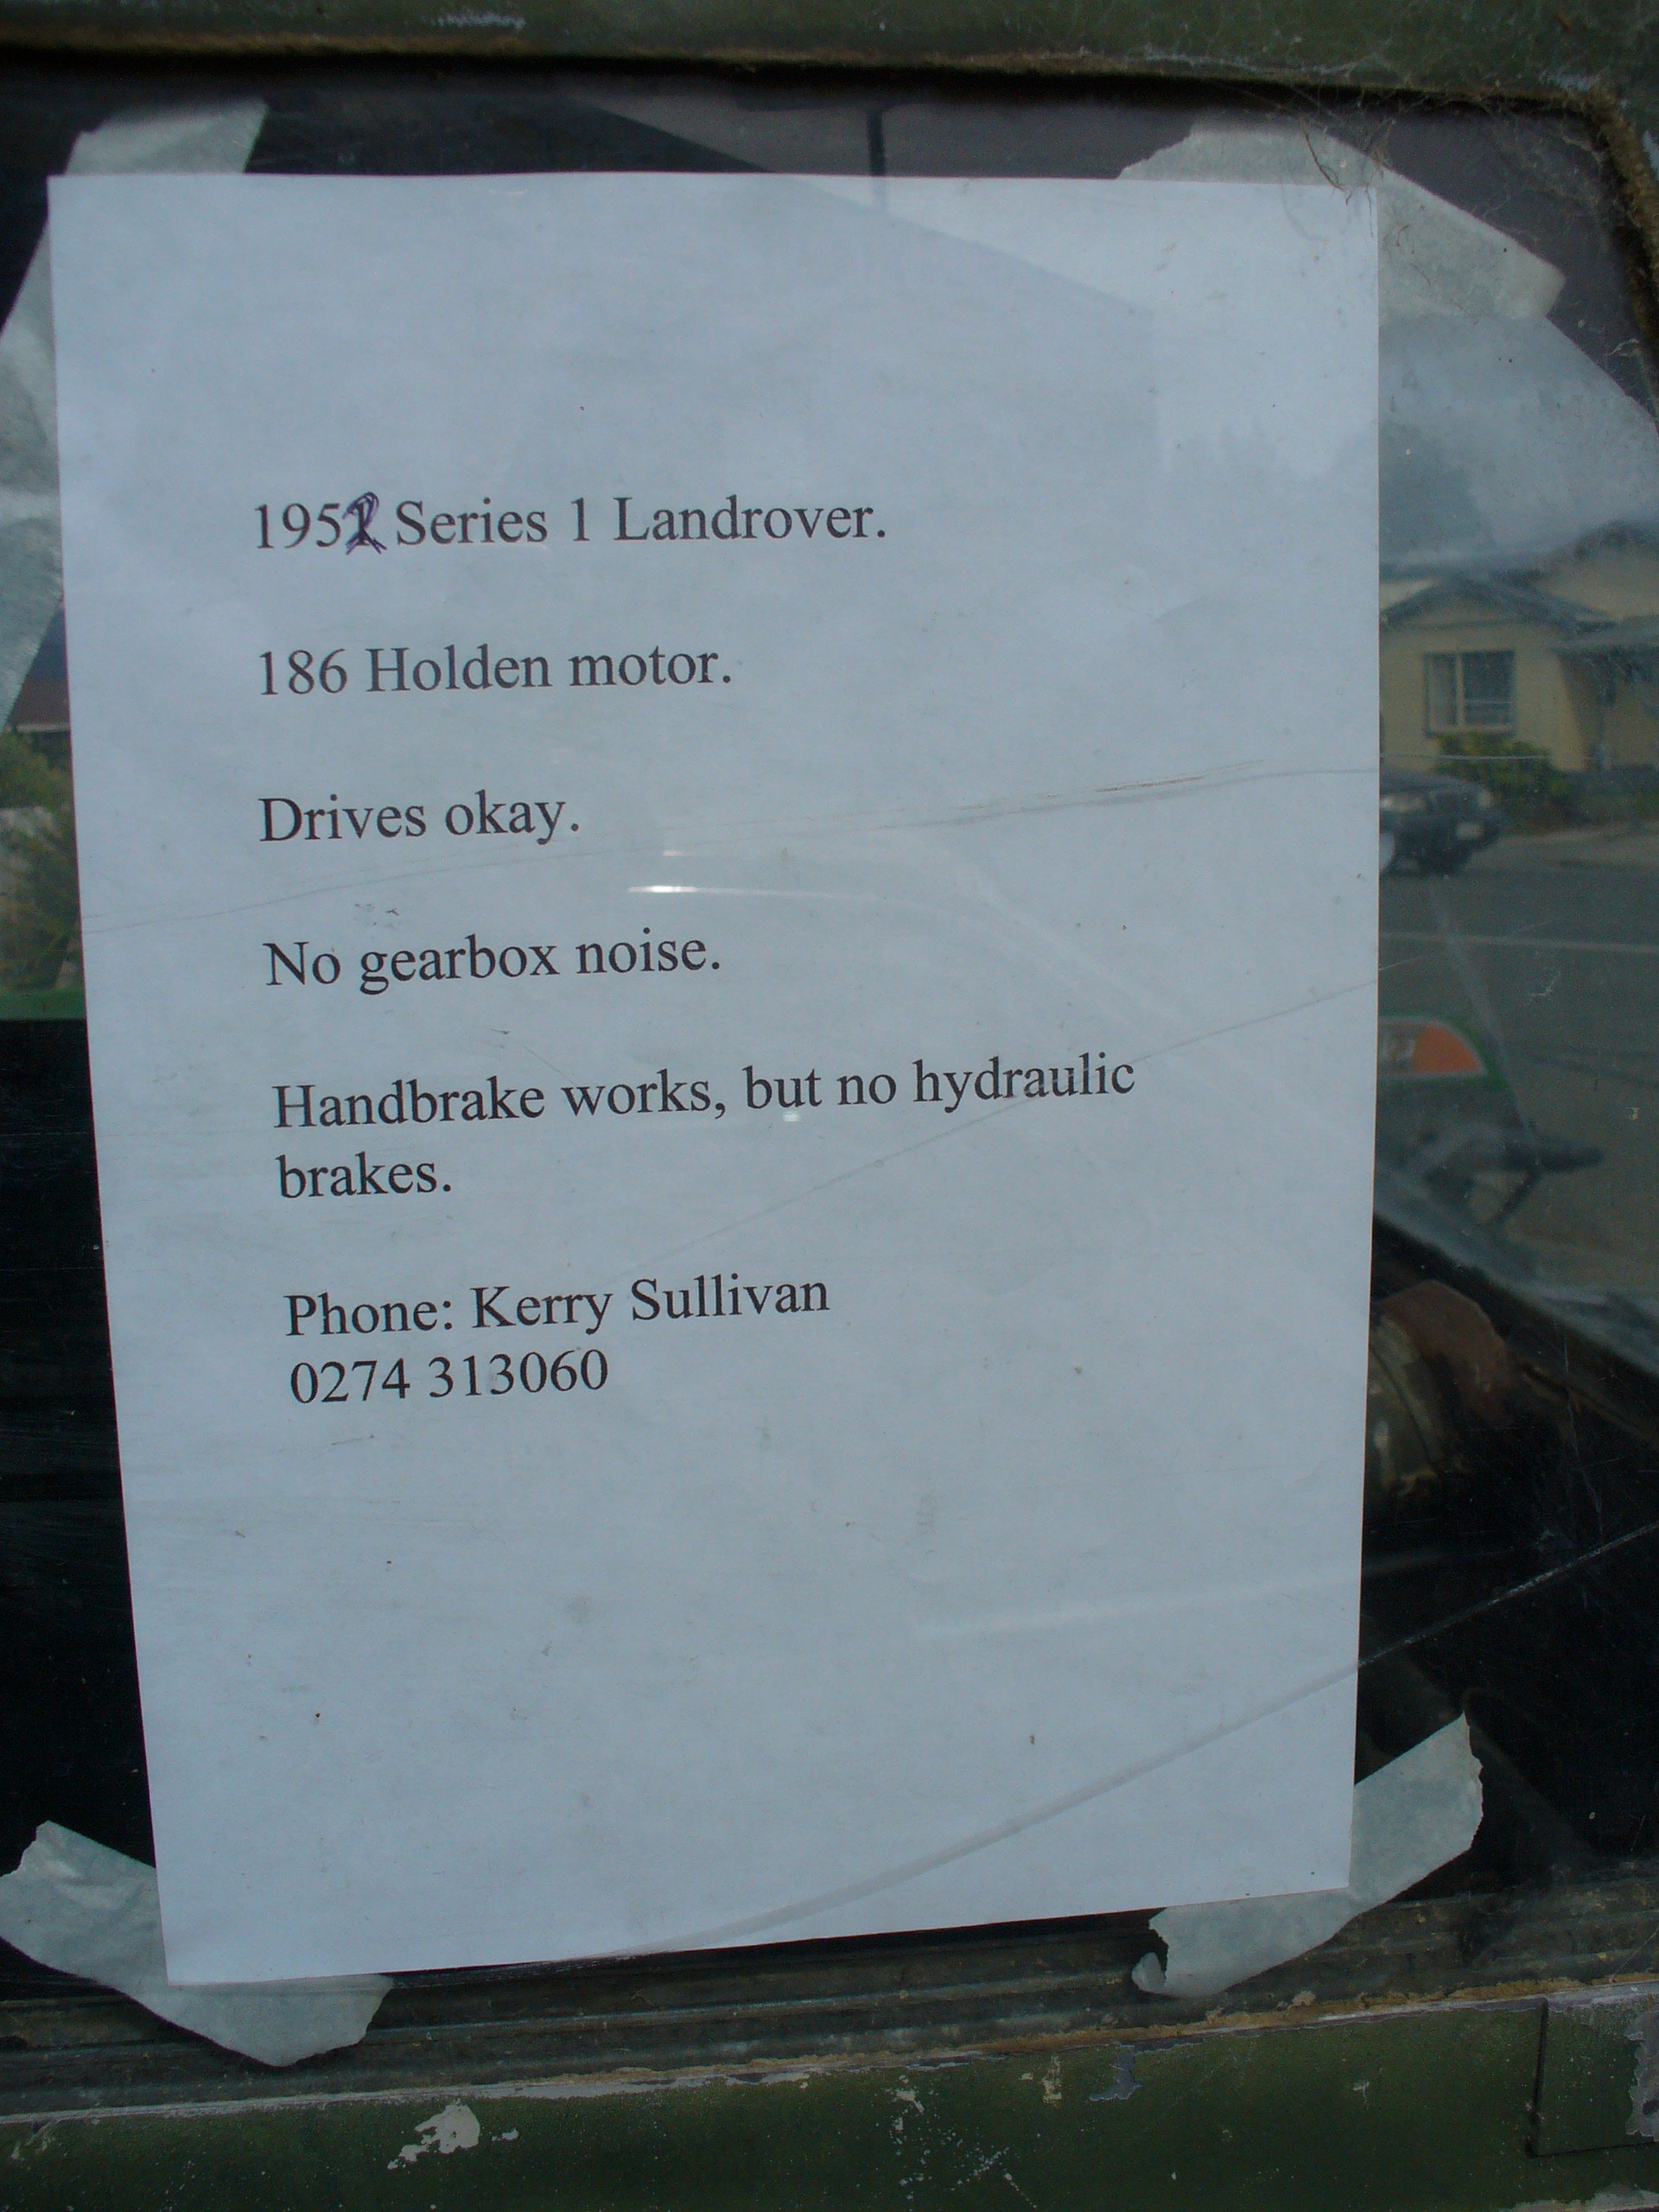 1952 Series 1 Landrover.
186 Holden motor.
Drives okay.
No gearbox noise.
Handbrake works, but no hydraulic
brakes.
Phone: Kerry Sullivan
0274 313060